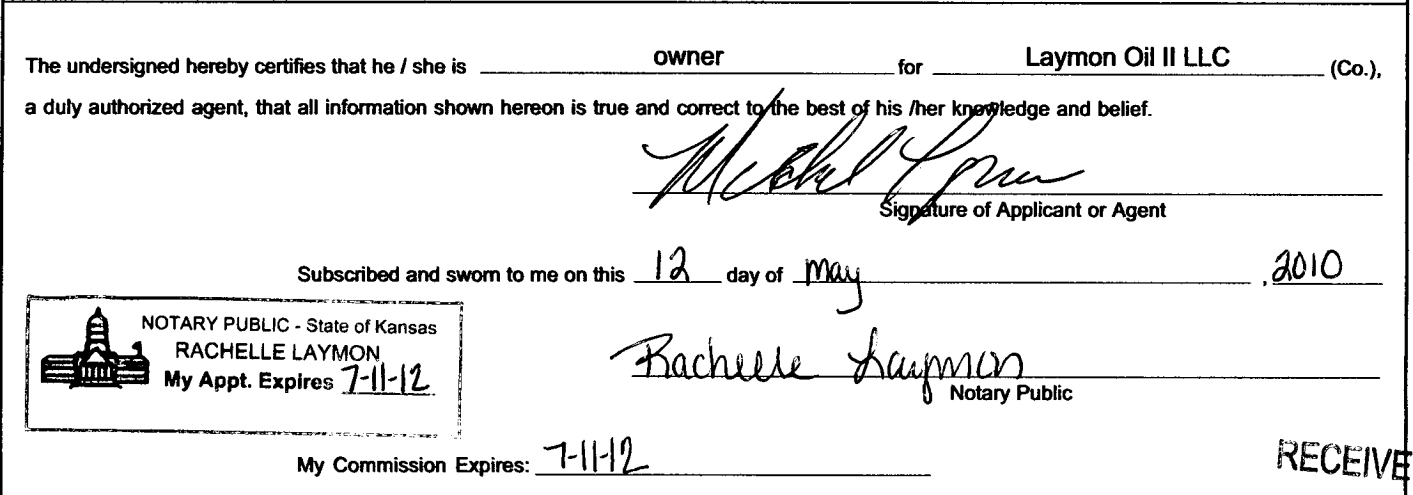 The undersigned hereby certifies that he / she is owner for Laymon Oil II LLC (Co.),
a duly authorized agent, that all information shown hereon is true and correct to the best of his /her knowledge and belief.
Michael Laymon
Signature of Applicant or Agent
Subscribed and sworn to me on this 12 day of May, 2010
NOTARY PUBLIC - State of Kansas
RACHELLE LAYMON
My Appt. Expires 7-11-12
Rachelle Laymon
Notary Public
My Commission Expires: 7-11-12
RECEIVE